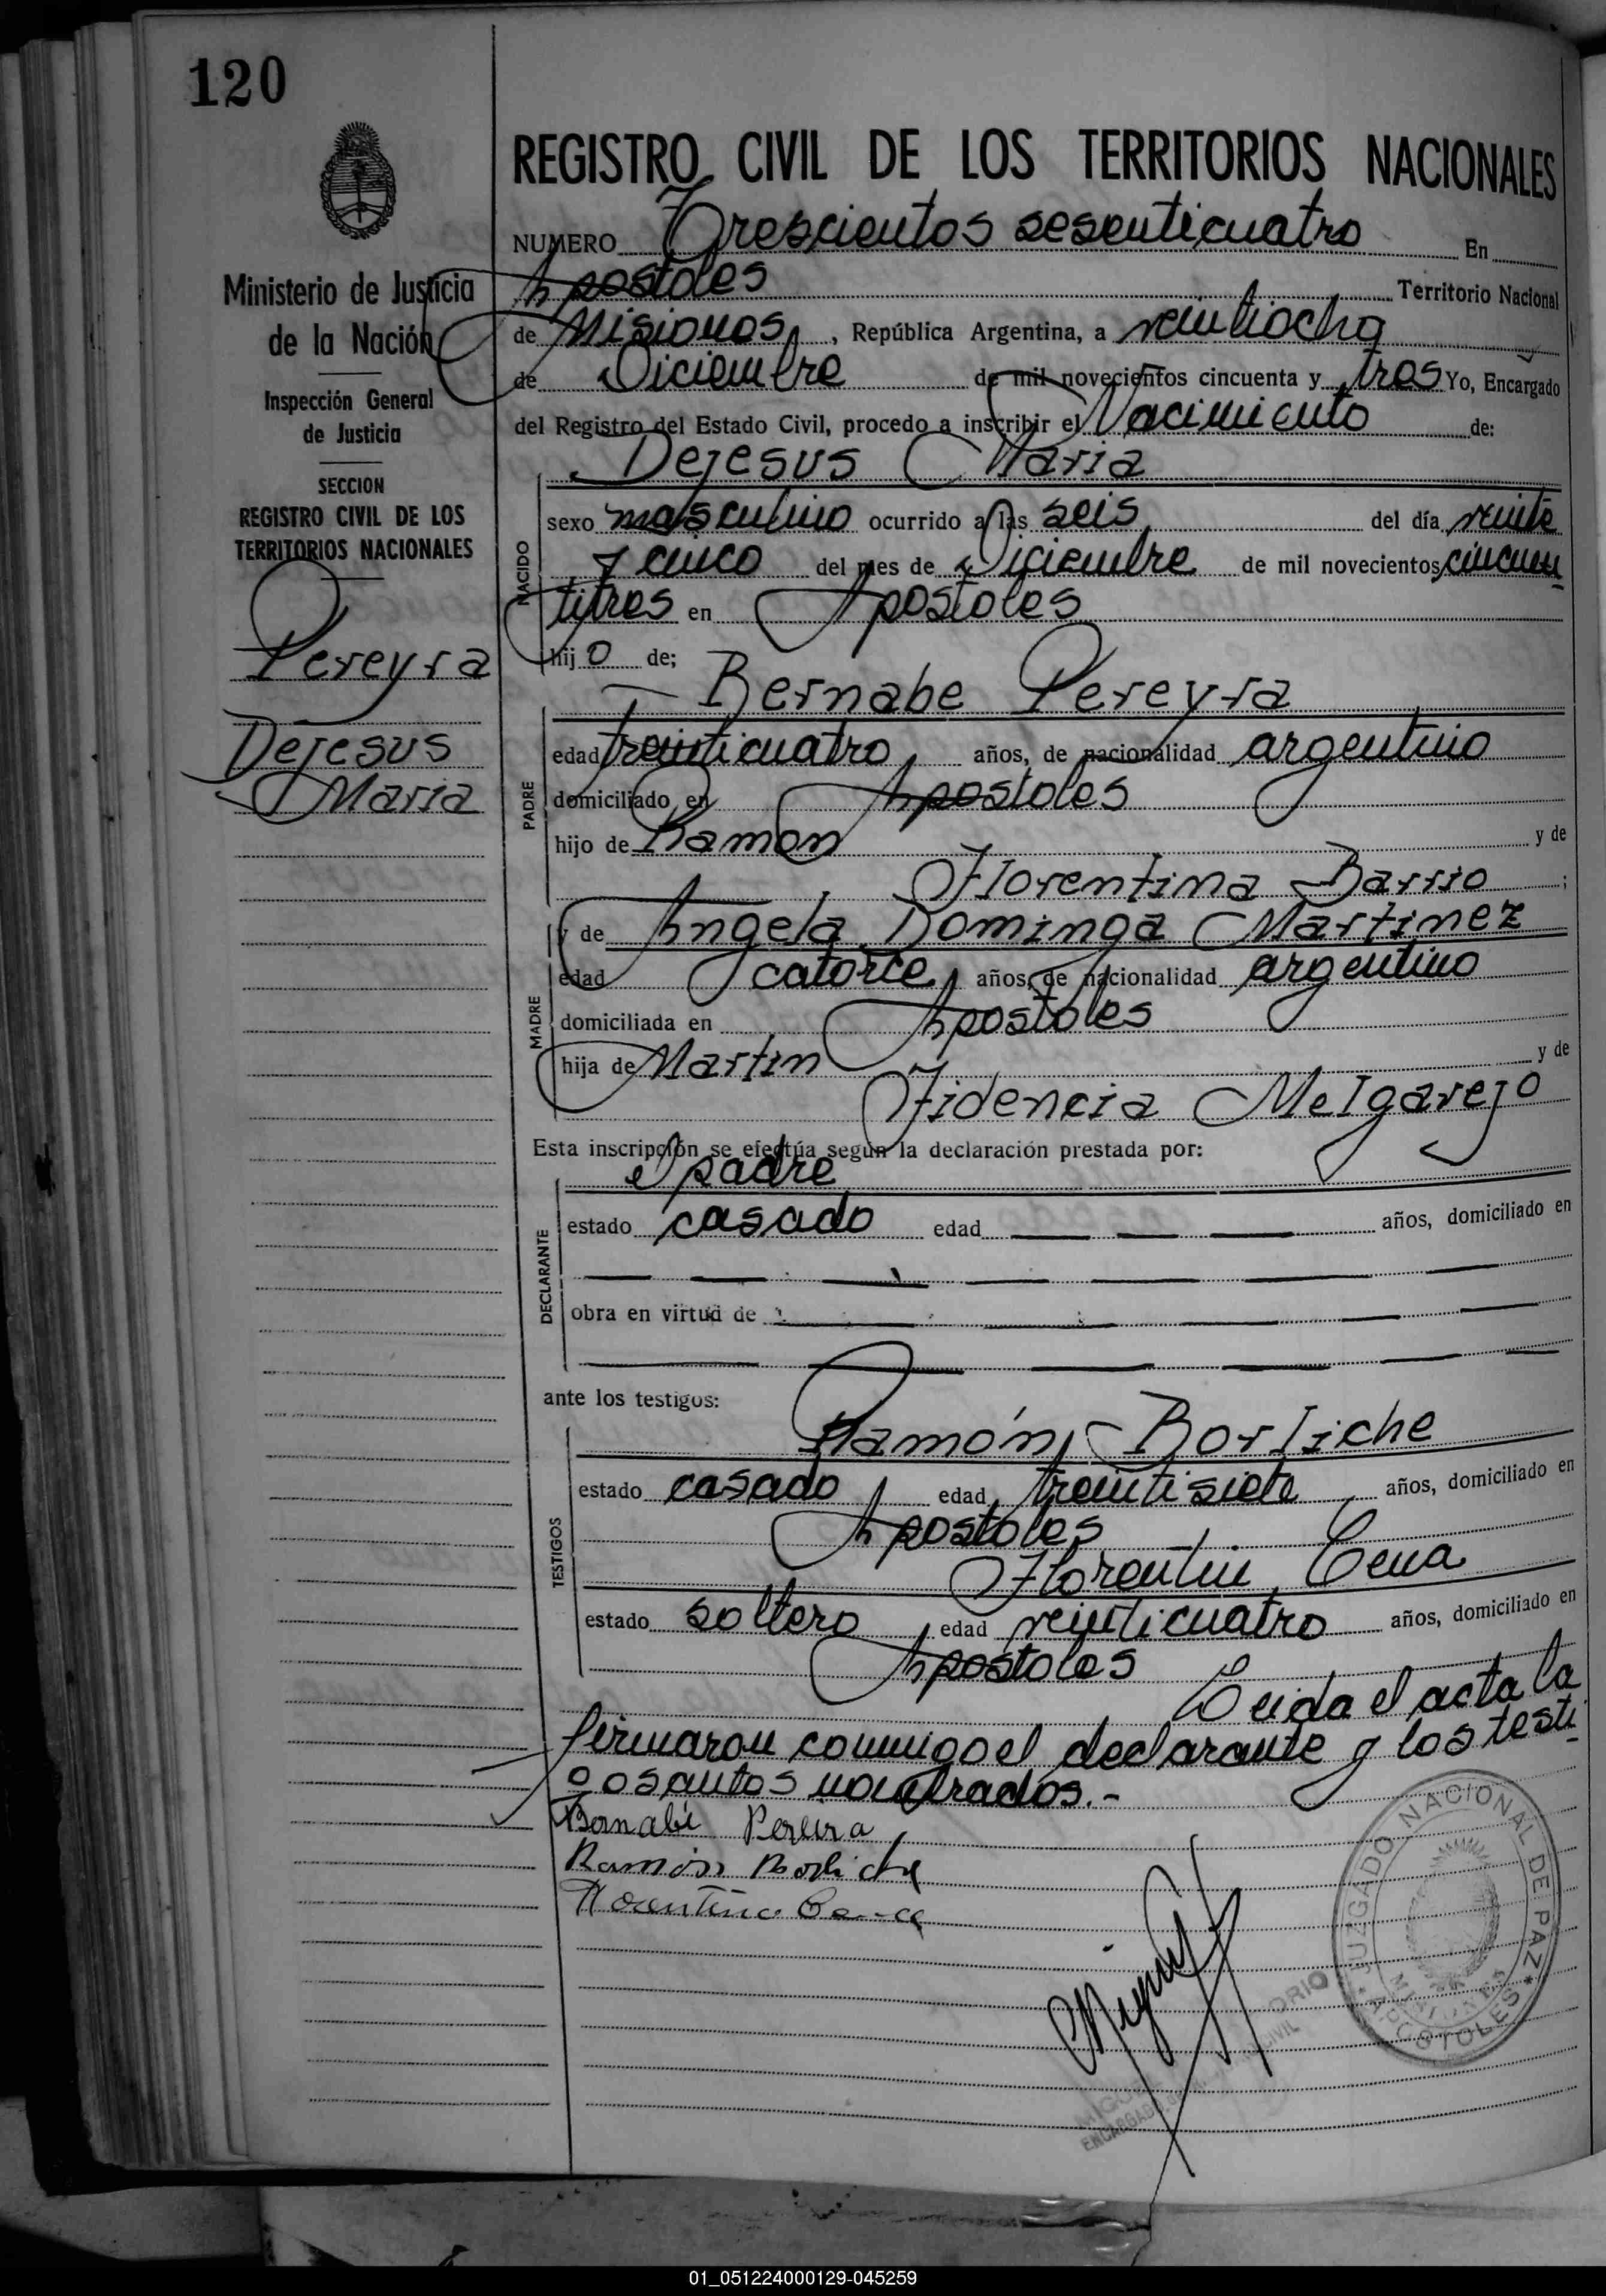 120
REGISTRO CIVIL DE LOS TERRITORIOS NACIONALES
NUMERO Trescientos sesenticuatro En
Apostoles Territorio Nacional
de Misiones, República Argentina, a veintiocho
de Diciembre de mil novecientos cincuenta y tres Yo, Encargado
del Registro del Estado Civil, procedo a inscribir el Nacimiento de:
Dejesus Maria
NACIDO
sexo masculino ocurrido a las seis del día veinte
y cinco del mes de Diciembre de mil novecientos cincuen
titres en Apostoles
hijo de;
Bernabe Pereyra
PADRE
edad treinticuatro años, de nacionalidad argentino
domiciliado en Apostoles
hijo de Ramon y de
Florentina Barrio;
MADRE
y de Angela Dominga Martinez
edad catorce años, de nacionalidad argentino
domiciliada en Apostoles
hija de Martin y de
Fidencia Melgarejo
Esta inscripción se efectúa según la declaración prestada por:
el padre
DECLARANTE
estado casado edad años, domiciliado en
obra en virtud de
ante los testigos:
TESTIGOS
Ramón Borliche
estado casado edad treintisiete años, domiciliado en
Apostoles
Florentin Cena
estado soltero edad veinticuatro años, domiciliado en
Apostoles
Leida el acta la
firmaron conmigo el declarante y los testi
gos antos nombrados.-
Bernabé Pereira
Ramón Borliche
Florentino
Ministerio de Justicia
de la Nación
Inspección General
de Justicia
SECCION
REGISTRO CIVIL DE LOS
TERRITORIOS NACIONALES
Pereyra
Dejesus
Maria
JUZGADO NACIONAL DE PAZ
MISIONES
APOSTOLES
ENCARGADO
CIVIL
01_051224000129-045259